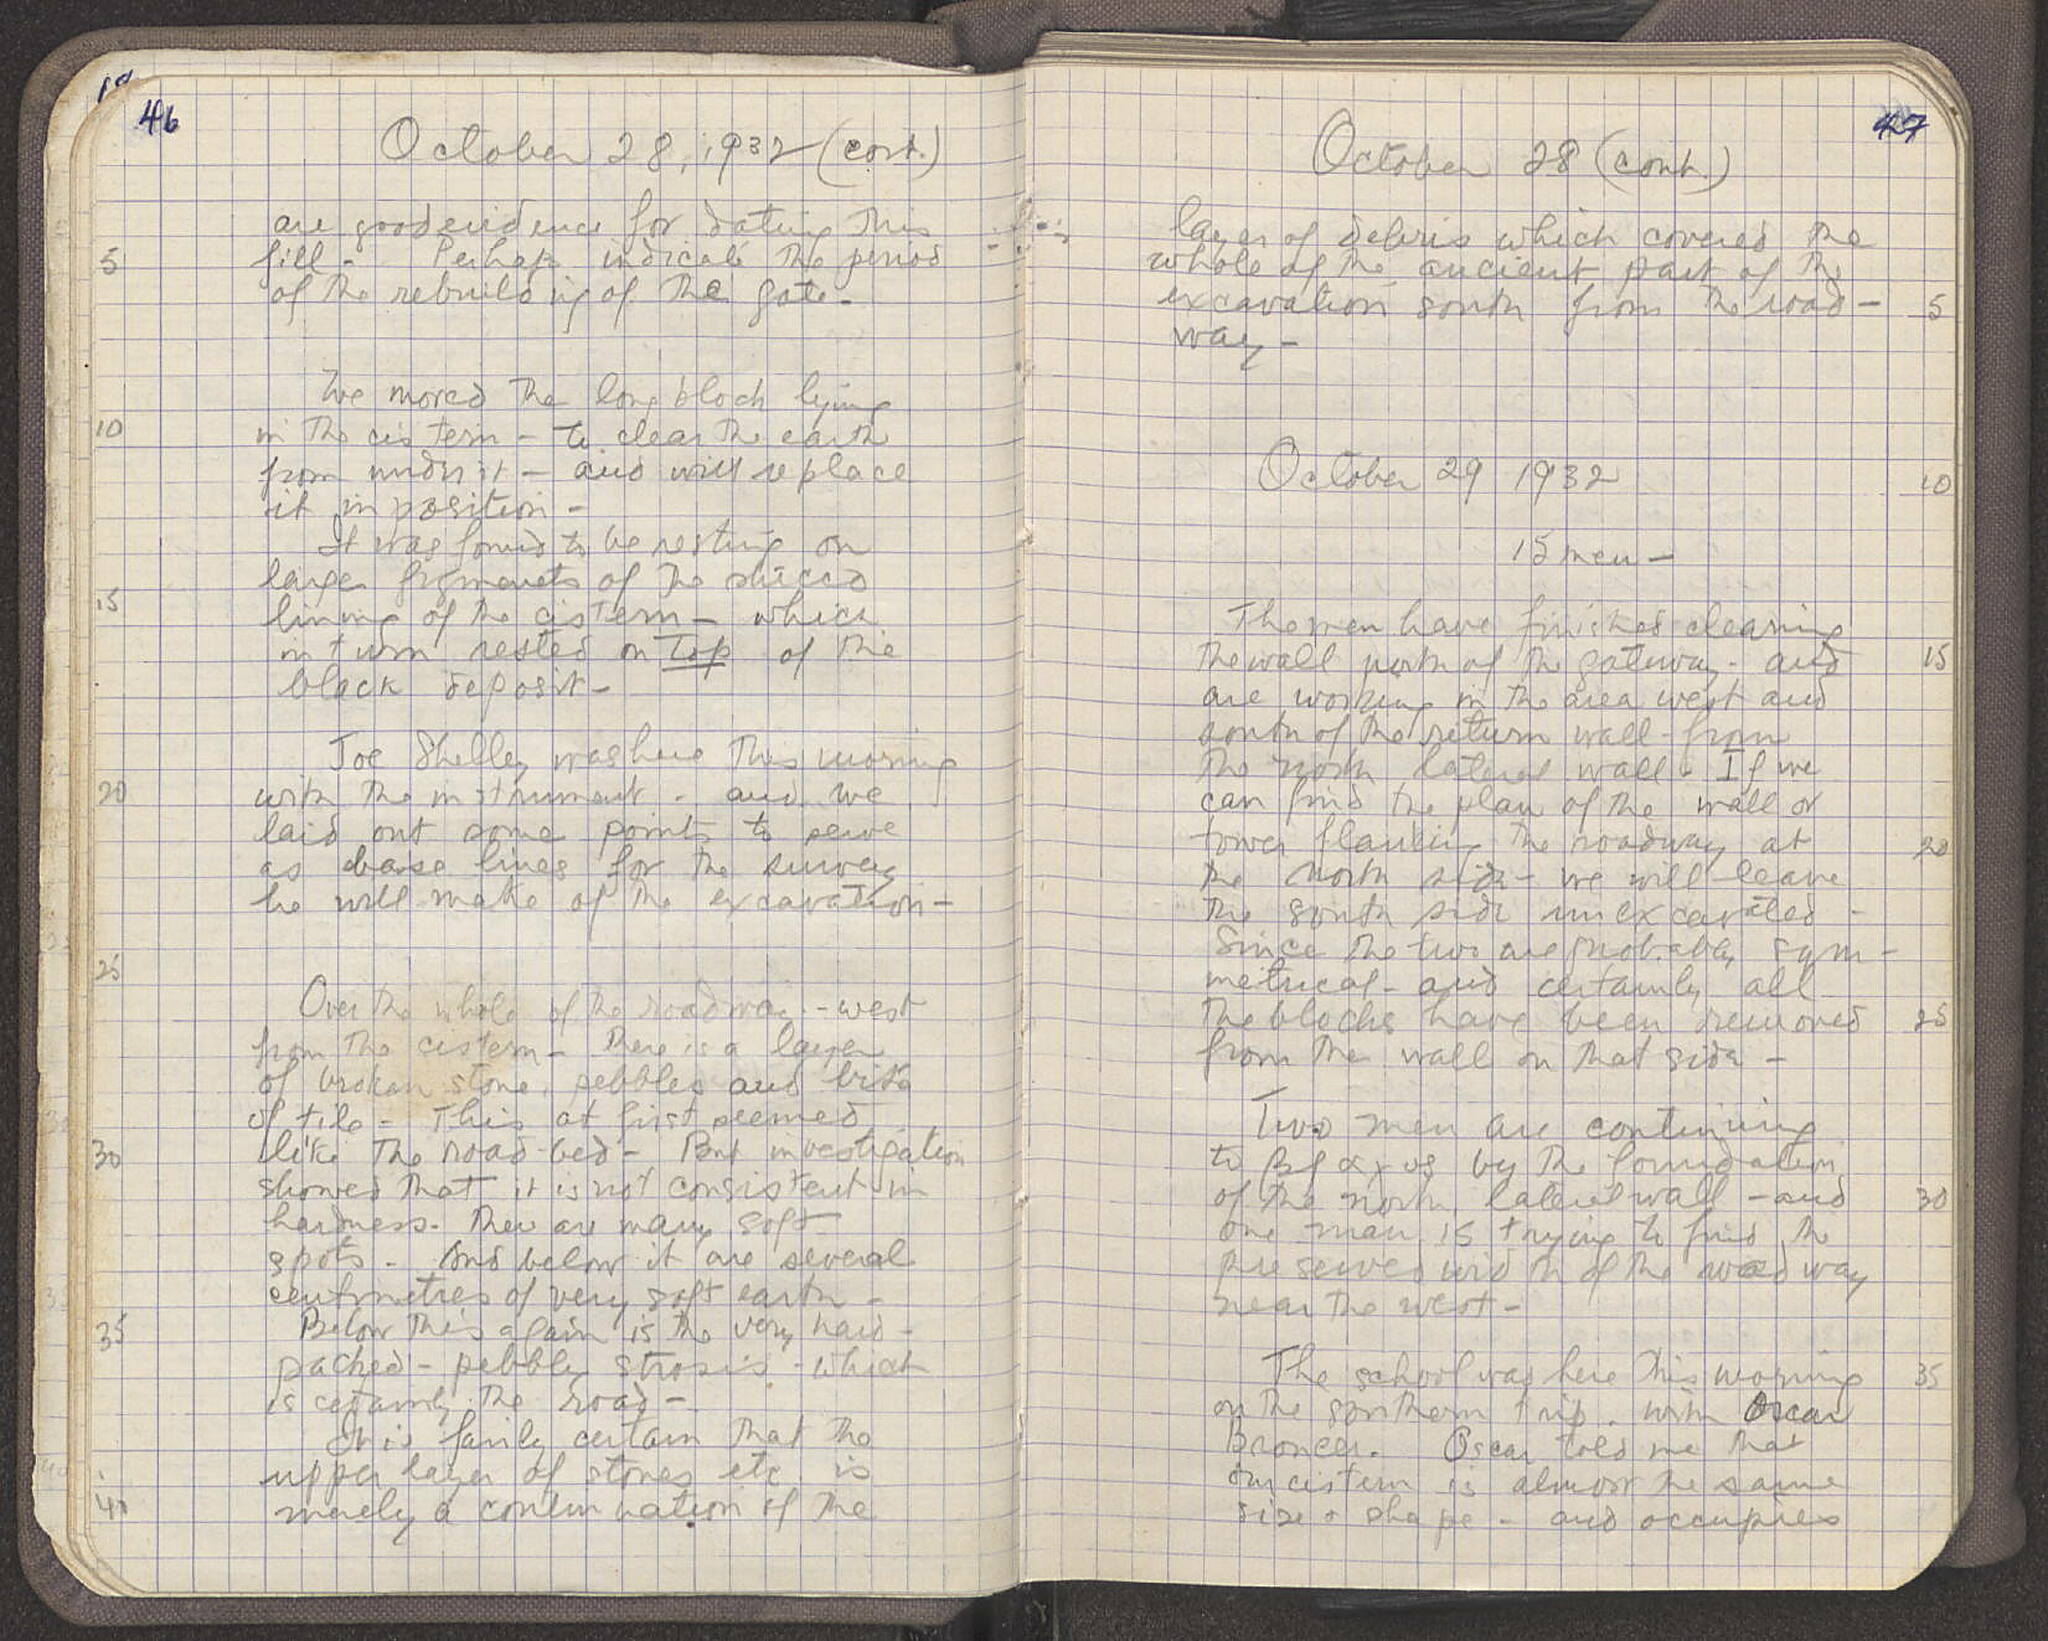 46
October 28, 1932 (cont.)
are good evidence for dating this
5 fill - Perhaps indicate the period
of the rebuilding of the gate -
We moved the long block lying
10 in the cistern - to clear the earth
from under it - and will replace
it in position -
It was found to be resting on
larger frgments of the stucco
15 lining of the cistern - which
in turn rested on Top of the
black deposit -
Joe Shelley was here this morning
20 with the instrument - and we
laid out some points to serve
as base lines for the survey
he will make of the excavation -
25
Over the whole of the roadway - west
from the cistern - there is a layer
of broken stone, pebbles and bits
of tile - This at first seemed
30 like the road-bed - But investigation
showed that it is not consistent in
hardness. There are many soft
spots - and below it are several
centimetres of very soft earth -
35 Below this again is the very hard-
packed - pebbly strosis - which
is certainly the road -
It is fairly certain that the
upper layer of stones etc. is
40 merely a continuation of the
47
October 28 (cont.)
layer of debris which covered the
whole of the ancient part of the
excavation south from the road - 5
way -
October 29 1932 10
15 men -
The men have finished clearing
the wall north of the gateway - and 15
are working in the area west and
south of the return wall - from
the north lateral wall. If we
can find the plan of the wall or
tower flanking the roadway at 20
the north side - we will leave
the south side unexcavated -
Since the two are probably sym-
metrical - and certainly all
the blocks have been removed 25
from the wall on that side -
Two men are continuing
to by the foundation
of the north lateral wall - and 30
one man is trying to find the
preserved width of the roadway
near the west -
The school was here this morning 35
on the southern trip. with Oscar
Broneer. Oscar told me that
our cistern is almost the same
size & shape - and occupies